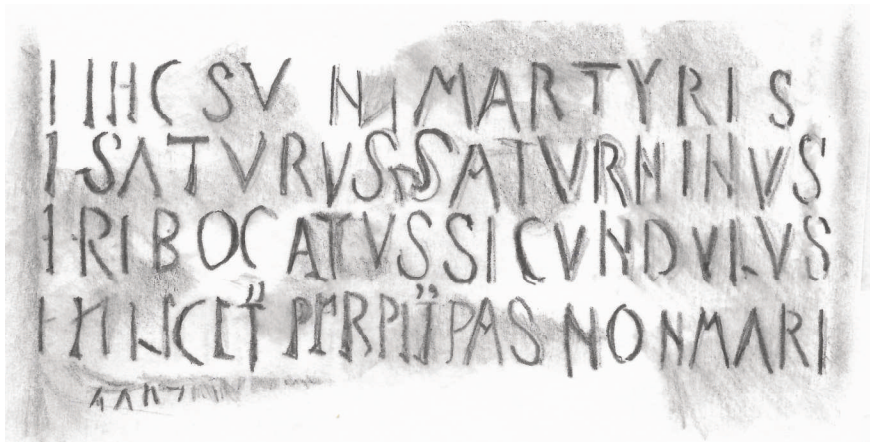 IIHC SVN MARTYRIS
SATVRVS SATVRNINVS
RIBOCATVS SICVNDVLVS
PIRPIT PAS NON MARI